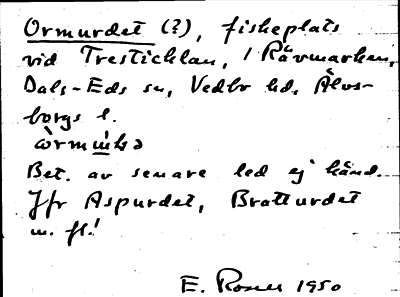 Ormurdet (?), fiskeplats
vid Tresticklan, i Rävmarken,
Dals-Eds sn, Vedbo hd, Älvs-
borgs l.
Bet. av senare led ej känd.
Jfr Aspurdet, Bratturdet
m. fl.!
E. Rosell 1950